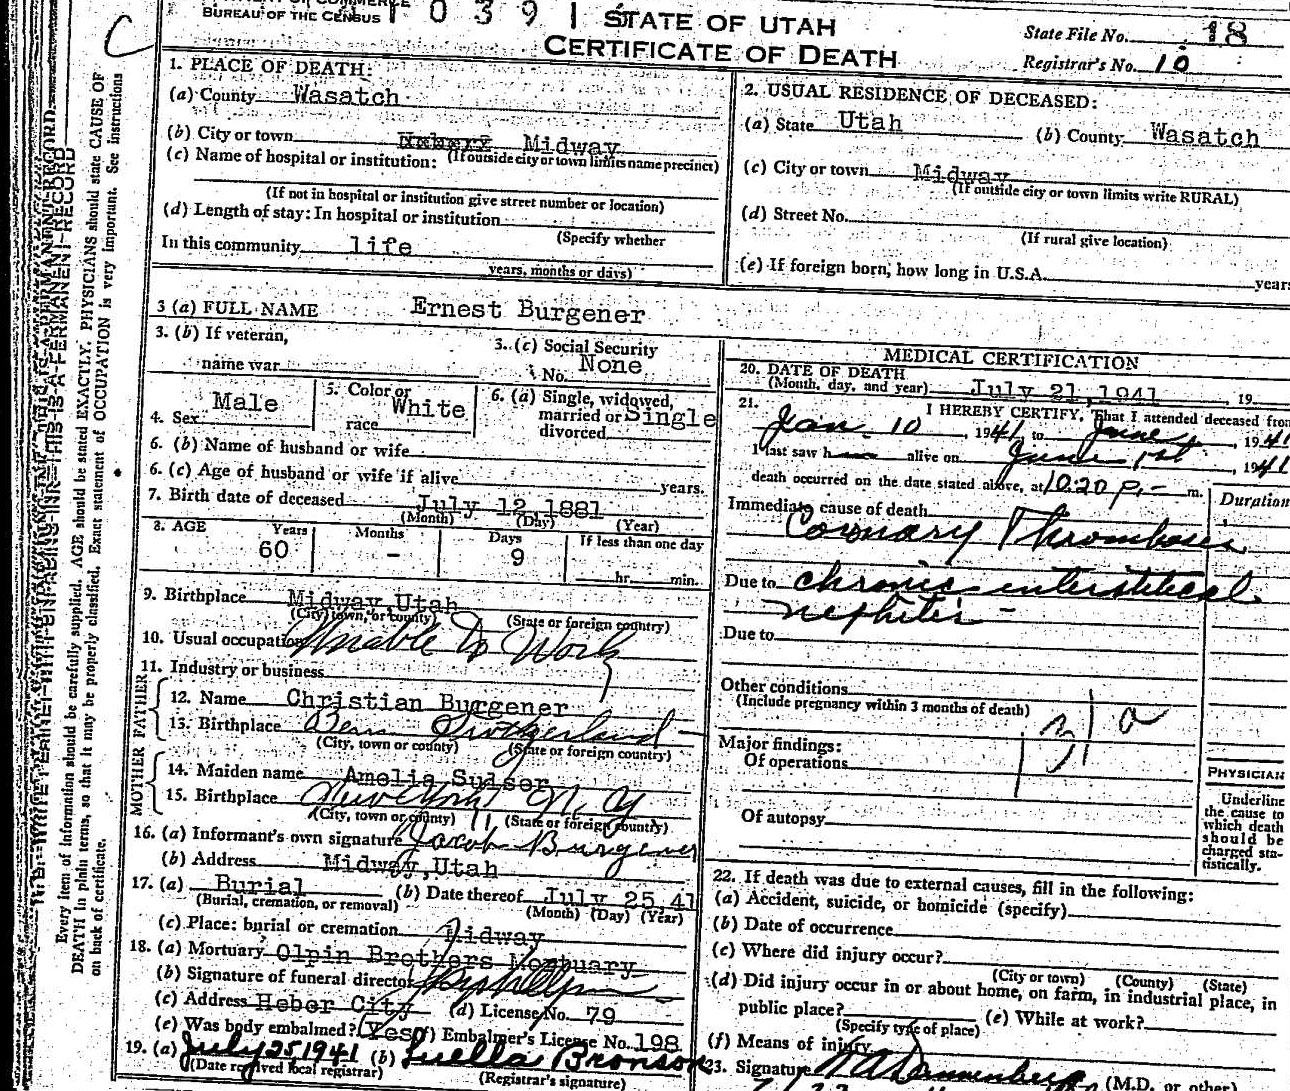 BUREAU OF THE CENSUS
10391
STATE OF UTAH
CERTIFICATE OF DEATH
State File No. 18
Registrar's No. 10
C
1. PLACE OF DEATH:
(a) County Wasatch
(b) City or town Midway
(If outside city or town limits name precinct)
(c) Name of hospital or institution:
(If not in hospital or institution give street number or location)
(d) Length of stay: In hospital or institution
(Specify whether
In this community life
years, months or days)
2. USUAL RESIDENCE OF DECEASED:
(a) State Utah (b) County Wasatch
(c) City or town Midway
(If outside city or town limits write RURAL)
(d) Street No.
(If rural give location)
(e) If foreign born, how long in U.S.A. years
3 (a) FULL NAME Ernest Burgener
3. (b) If veteran,
name war
3. (c) Social Security
No. None
4. Sex Male
5. Color or
race White
6. (a) Single, widowed,
married or Single
divorced
6. (b) Name of husband or wife
6. (c) Age of husband or wife if alive years.
7. Birth date of deceased July 12, 1881
(Month) (Day) (Year)
8. AGE Years Months Days If less than one day
60 - 9
hr. min.
9. Birthplace Midway, Utah
(City, town, or county) (State or foreign country)
10. Usual occupation Unable to Work
11. Industry or business
FATHER
12. Name Christian Burgener
13. Birthplace Bern Switzerland
(City, town or county) (State or foreign country)
MOTHER
14. Maiden name Amelia Sulser
15. Birthplace New York N. Y
(City, town or county) (State or foreign country)
16. (a) Informant's own signature Jacob Burgener
(b) Address Midway, Utah
17. (a) Burial (b) Date thereof July 25, 41
(Burial, cremation, or removal) (Month) (Day) (Year)
(c) Place: burial or cremation Midway
18. (a) Mortuary Olpin Brothers Mortuary
(b) Signature of funeral director
(c) Address Heber City (d) License No. 79
(e) Was body embalmed? Yes (f) Embalmer's License No. 198
19. (a) July 25 1941 (b) Luella Bronson
(Date received local registrar) (Registrar's signature)
MEDICAL CERTIFICATION
20. DATE OF DEATH
(Month, day, and year) July 21, 1941 , 19
21. I HEREBY CERTIFY, That I attended deceased from
Jan. 10 , 1941 to June 1 , 1941
I last saw h alive on June 1st , 1941
death occurred on the date stated above, at 10:20 P. m.
Duration
Immediate cause of death
Coronary Thrombosis
Due to chronic interstitial
nephritis
Due to
Other conditions
(Include pregnancy within 3 months of death)
131 a
Major findings:
Of operations
Of autopsy
PHYSICIAN
Underline
the cause to
which death
should be
charged sta-
tistically.
22. If death was due to external causes, fill in the following:
(a) Accident, suicide, or homicide (specify)
(b) Date of occurrence
(c) Where did injury occur?
(City or town) (County) (State)
(d) Did injury occur in or about home, on farm, in industrial place, in
public place? (e) While at work?
(Specify type of place)
(f) Means of injury
23. Signature
(M.D. or other)
Every item of information should be carefully supplied. AGE should be stated EXACTLY. PHYSICIANS should state CAUSE OF
DEATH in plain terms, so that it may be properly classified. Exact statement of OCCUPATION is very important. See instructions
on back of certificate.